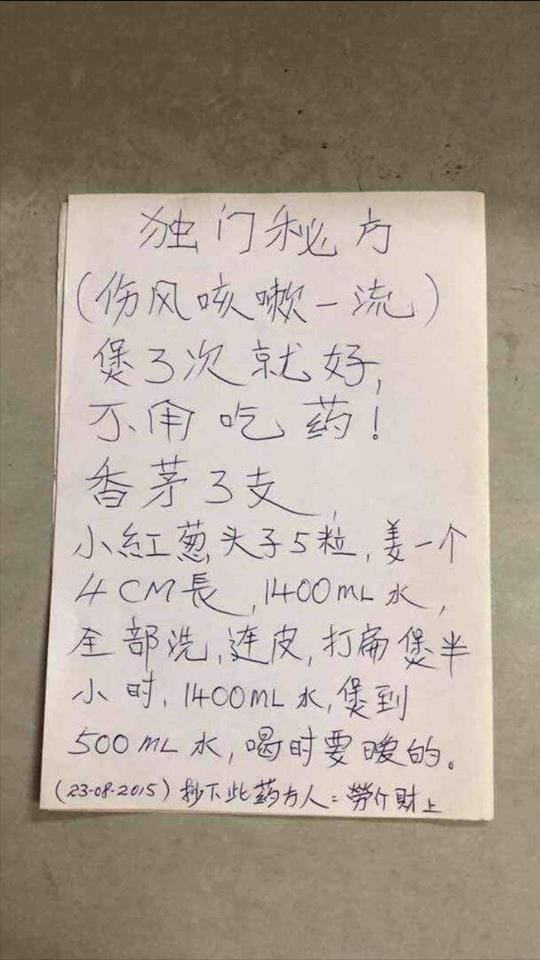 独门秘方
(伤风咳嗽一流)
煲3次就好,
不用吃药!
香茅3支,
小紅葱头子5粒,姜一个
4CM長,1400mL水,
全部洗,连皮,打扁煲半
小时,1400ML水,煲到
500ML水,喝时要暖的。
(23-08-2015)抄下此药方人:劳介財上